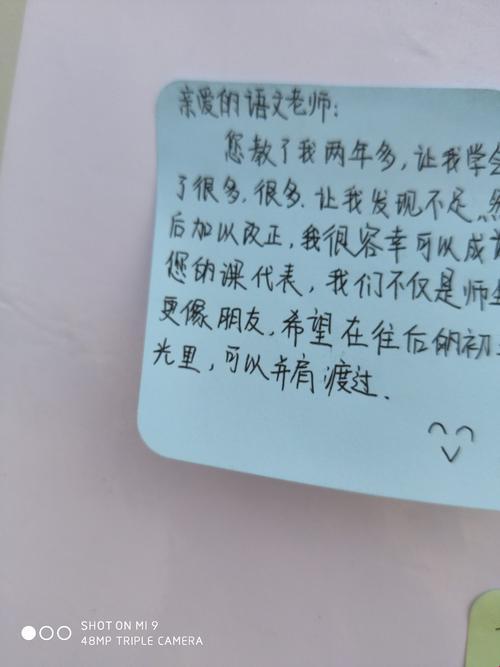 亲爱的语文老师：
您教了我两年多，让我学会
了很多，很多，让我发现不足，然
后加以改正，我很容幸可以成
您的课代表，我们不仅是师生
更像朋友，希望在往后的初
光里，可以并肩渡过．
SHOT ON MI 9
48MP TRIPLE CAMERA